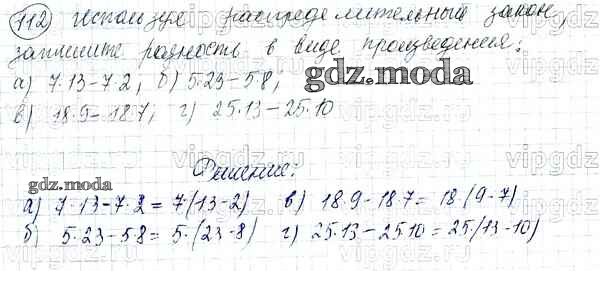 112 Используя распределительный закон,
запишите разность в виде произведения:
а) 7·13-7·2; б) 5·23-5·8;
gdz.moda
в) 18·9-18·7; г) 25·13-25·10
Решение:
gdz.moda
а) 7·13-7·2=7·(13-2) в) 18·9-18·7=18·(9-7)
б) 5·23-5·8=5·(23-8) г) 25·13-25·10=25·(13-10)
gdz.moda